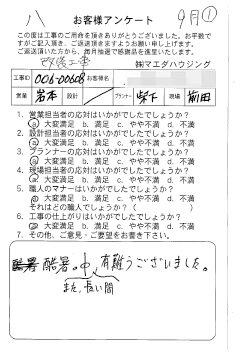 八 お客様アンケート 9月①
この度は工事のご用命を頂きありがとうございました。お手数で
すがご記入頂き、ご返送頂きますようお願い申し上げます。
ご返送頂いた方から、毎月抽選で感謝品を進呈いたします。
改修工事 ㈱マエダハウジング
工事ID 006-00608 お客様名
営業 岩本 設計 プランナー 柴下 現場 前田
1. 営業担当者の応対はいかがでしたでしょうか？
a 大変満足 b. 満足 c. やや不満 d. 不満
2. 設計担当者の応対はいかがでしたでしょうか？
a. 大変満足 b. 満足 c. やや不満 d. 不満
3. プランナーの応対はいかがでしたでしょうか？
a 大変満足 b. 満足 c. やや不満 d. 不満
4. 現場担当者の応対はいかがでしたでしょうか？
a 大変満足 b. 満足 c. やや不満 d. 不満
5. 職人のマナーはいかがでしたでしょうか？
a 大変満足 b. 満足 c. やや不満 d. 不満
それはどの職人でしょうか？（ ）
6. 工事の仕上がりはいかがでしたでしょうか？
a 大変満足 b. 満足 c. やや不満 d. 不満
7. その他、ご意見・ご要望をお書き下さい。
酷暑の中 有難うございました。
また、長い間